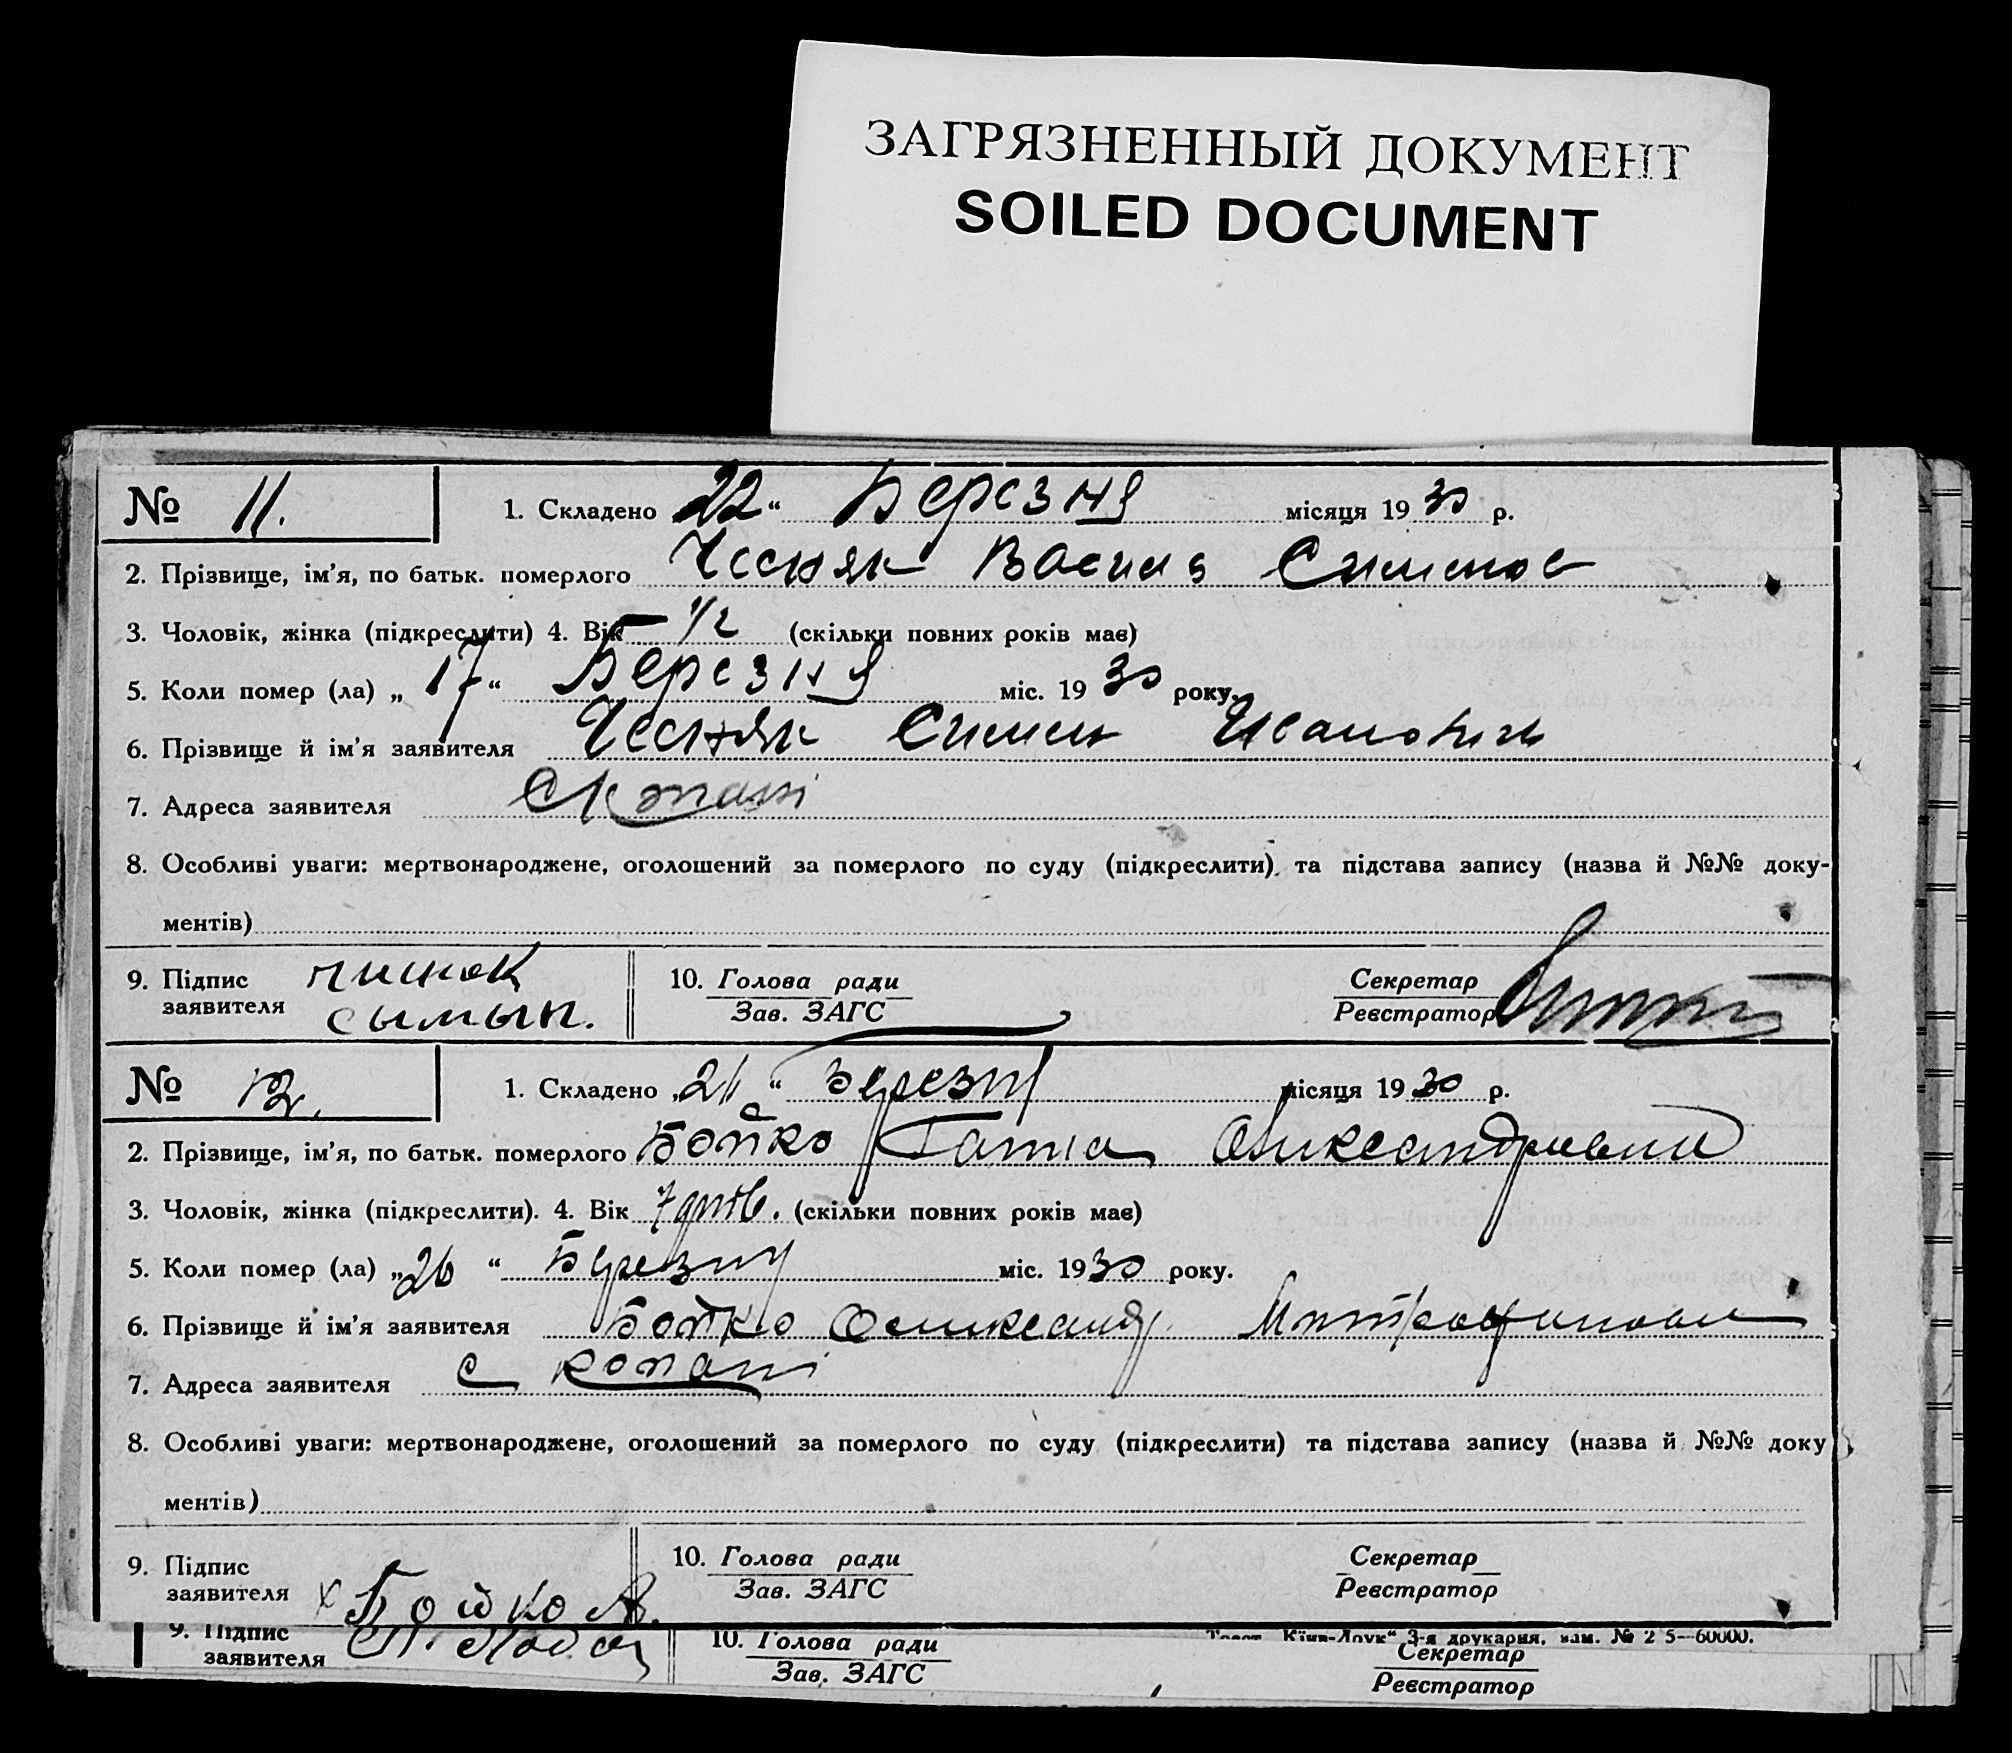 ЗАГРЯЗНЕННЫЙ ДОКУМЕНТ
SOILED DOCUMENT
№ 11.
1. Складено 22 “ Березня місяця 19 30 р.
2. Прізвище, ім’я, по батьк. померлого Чесняк Василь Симинов
3. Чоловік, жінка (підкреслити) 4. Вік 1/2 (скільки повних років має)
5. Коли помер (ла) „ 17 “ Березня міс. 19 30 року.
6. Прізвище й ім’я заявителя Чесняк Симен Иванович
7. Адреса заявителя с Копані
8. Особливі уваги: мертвонароджене, оголошений за померлого по суду (підкреслити) та підстава запису (назва й №№ доку-
ментів)
9. Підпис заявителя
10. Голова ради
Зав. ЗАГС
Секретар
Реєстратор
№ 12.
1. Складено „ 26 “ Березня місяця 19 30 р.
2. Прізвище, ім’я, по батьк. померлого Бойко Олександривна
3. Чоловік, жінка (підкреслити). 4. Вік 7 днів. (скільки повних років має)
5. Коли помер (ла) „ 26 “ Березня міс. 19 30 року.
6. Прізвище й ім’я заявителя Бойко Олександр Митрофанович
7. Адреса заявителя с Копані
8. Особливі уваги: мертвонароджене, оголошений за померлого по суду (підкреслити) та підстава запису (назва й №№ доку
ментів)
9. Підпис заявителя х Бойко А.
10. Голова ради
Зав. ЗАГС
Секретар
Реєстратор
3-я друкарня, зам. № 2 5—60000.
9. Підпис
заявителя
10. Голова ради
Зав. ЗАГС
Секретар
Реєстратор